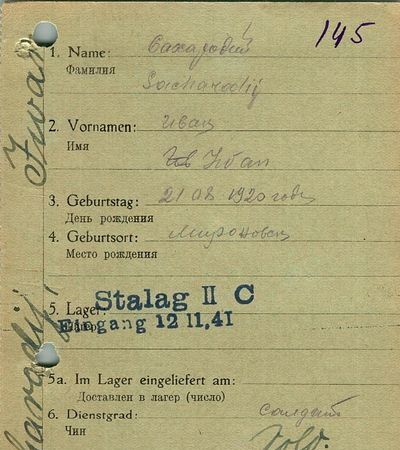 145
1. Name: Сахаровий
Фамилия
Sacharodij
2. Vornamen: Иван
Имя
Iwan
3. Geburtstag: 21 08 1920 года
День рождения
4. Geburtsort:
Место рождения
5. Lager:
Stalag II C
Eingang 12 11.41
5a. Im Lager eingeliefert am:
Доставлен в лагер (число)
6. Dienstgrad: салдат
Чин
Sold.
Iwan